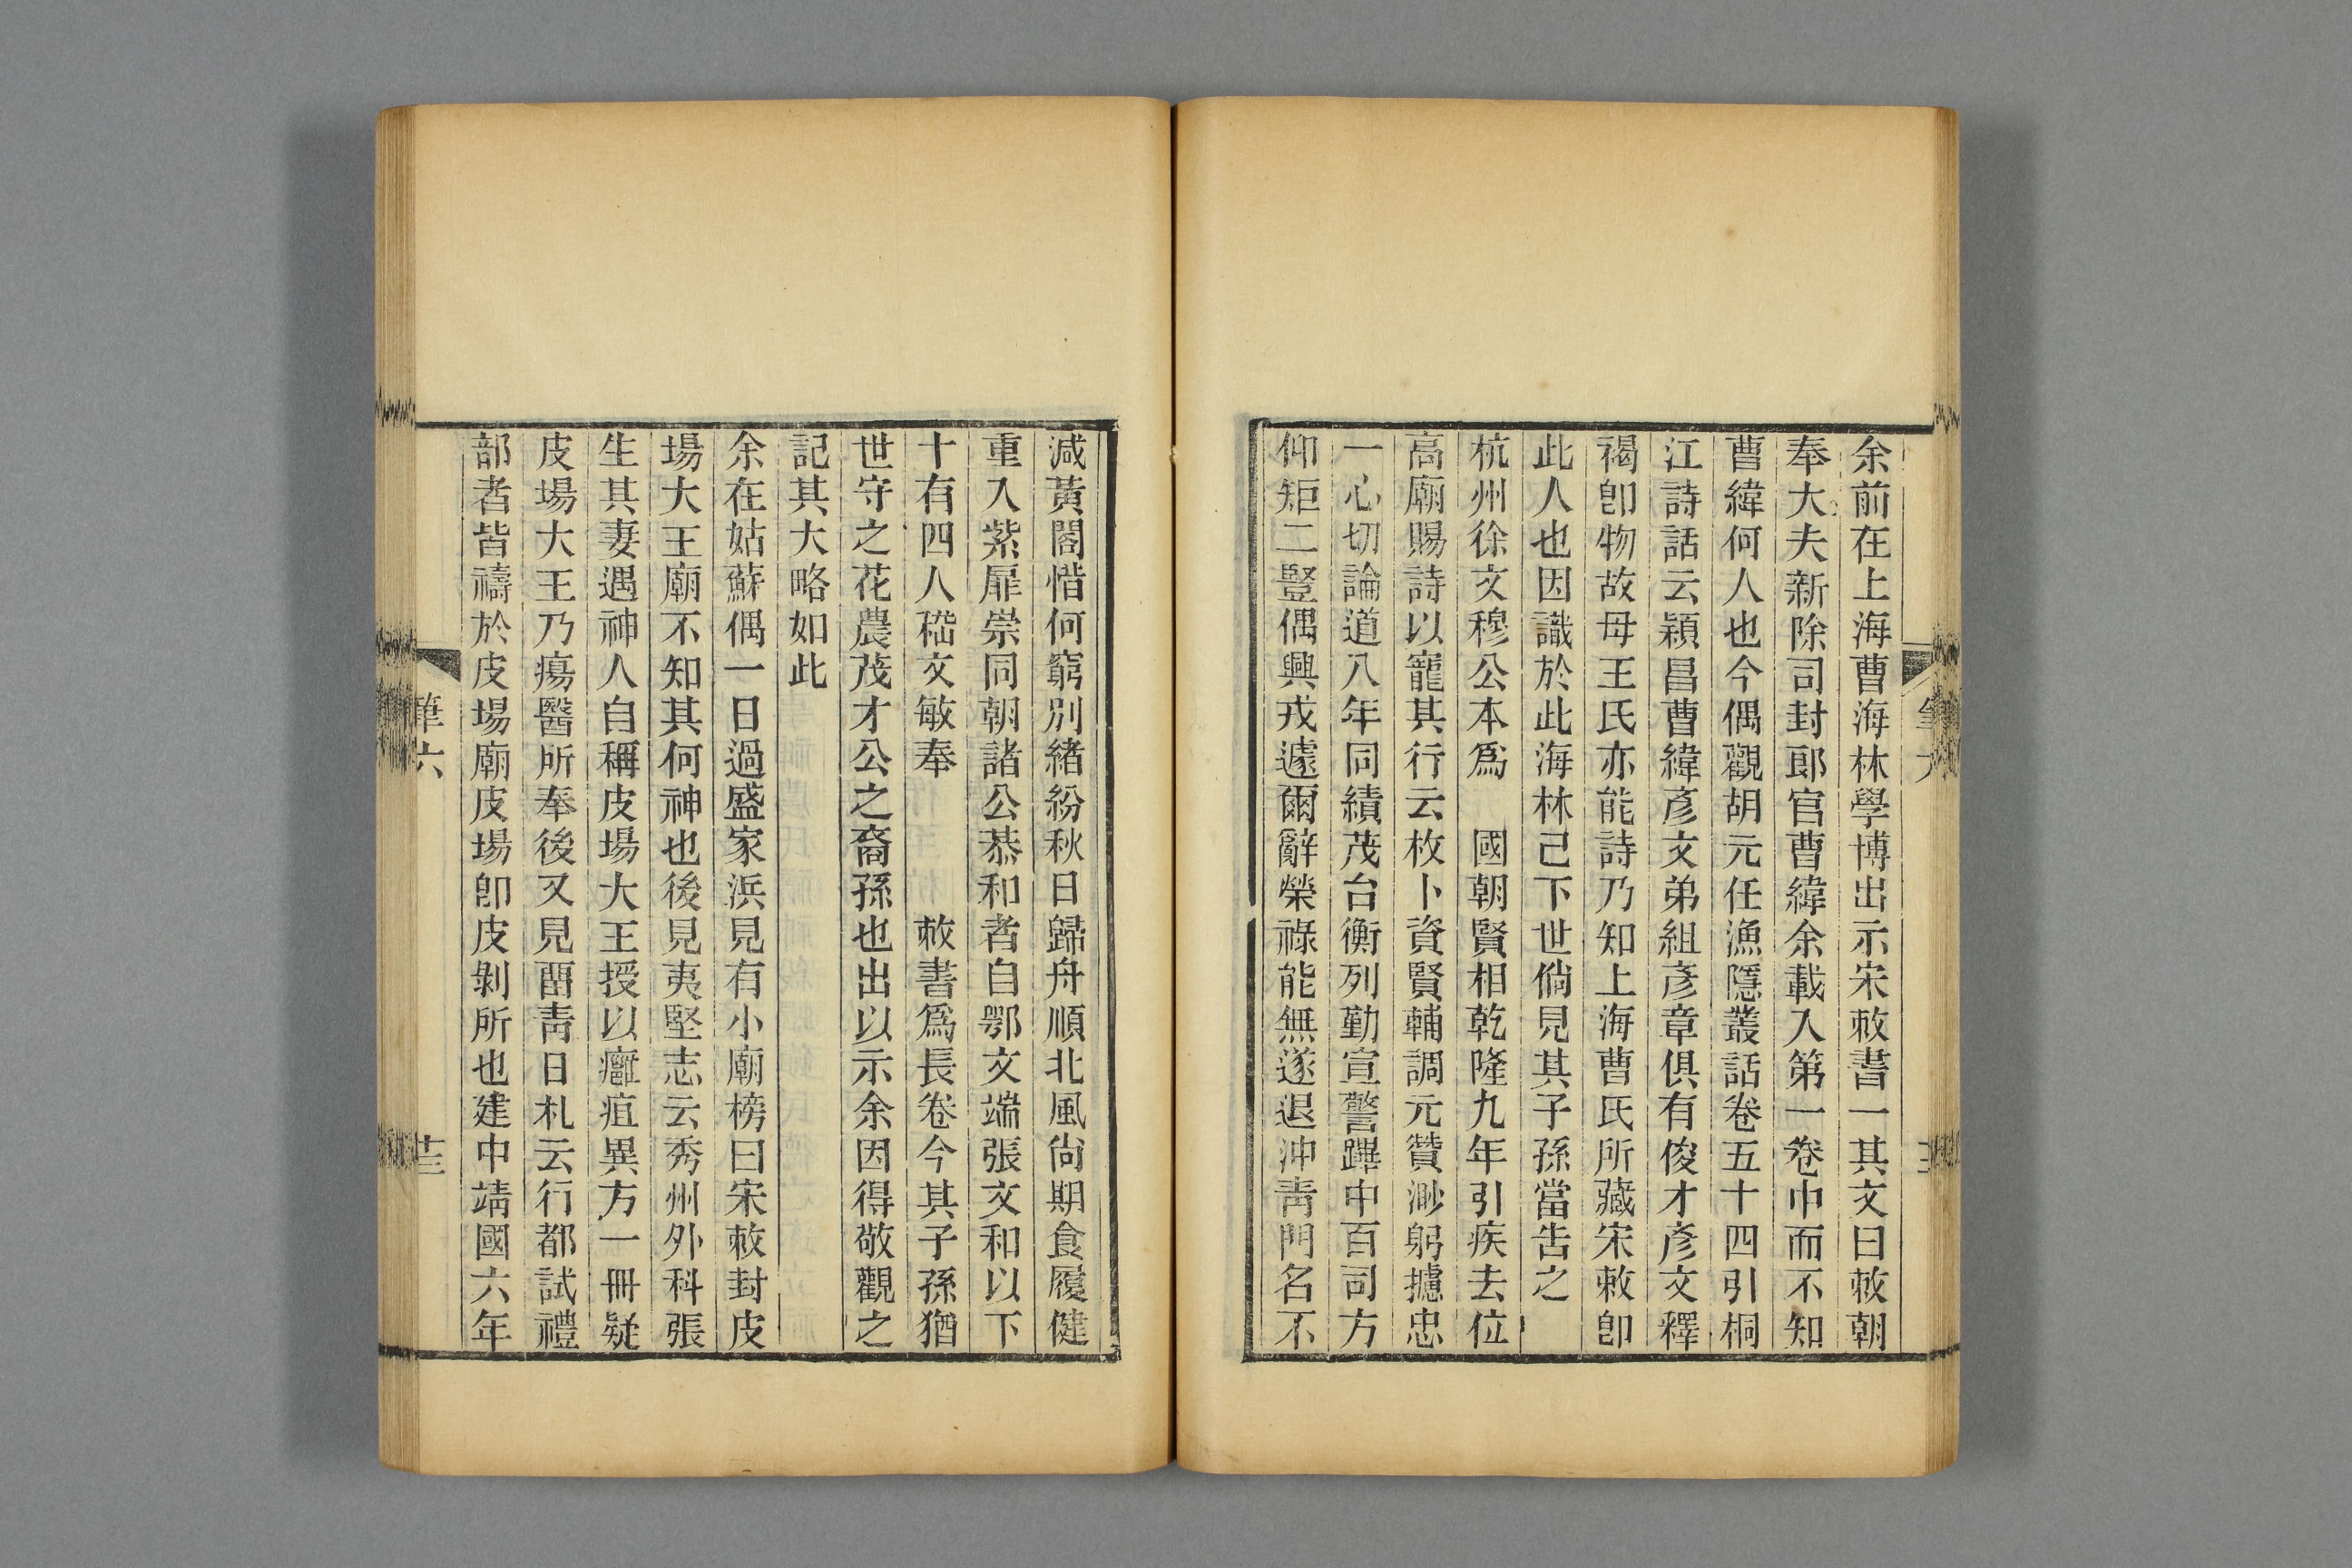 余前在上海曹海林學博出示宋敕書一其文曰敕朝
奉大夫新除司封郎官曹緯余載入第一卷中而不知
曹緯何人也今偶觀胡元任漁隱叢話卷五十四引桐
江詩話云潁昌曹緯彥文弟組彥章俱有俊才彥文釋
褐卽物故母王氏亦能詩乃知上海曹氏所藏宋敕卽
此人也因識於此海林己下世倘見其子孫當告之
杭州徐文穆公本爲　國朝賢相乾隆九年引疾去位
高廟賜詩以寵其行云枚卜資賢輔調元贊渺躬攄忠
一心切論道八年同績茂台衡列勤宣警蹕中百司方
仰矩二豎偶興戎遽爾辭榮祿能無遂退沖靑門名不
減黃閣惜何窮別緒紛秋日歸舟順北風尙期食履健
重入紫扉崇同朝諸公恭和者自鄂文端張文和以下
十有四人嵇文敏奉　　　敕書爲長卷今其子孫猶
世守之花農茂才公之裔孫也出以示余因得敬觀之
記其大略如此
余在姑蘇偶一日過盛家浜見有小廟榜曰宋敕封皮
場大王廟不知其何神也後見夷堅志云秀州外科張
生其妻遇神人自稱皮場大王授以癰疽異方一冊疑
皮場大王乃瘍醫所奉後又見畱靑日札云行都試禮
部者皆禱於皮場廟皮場卽皮剝所也建中靖國六年
筆六